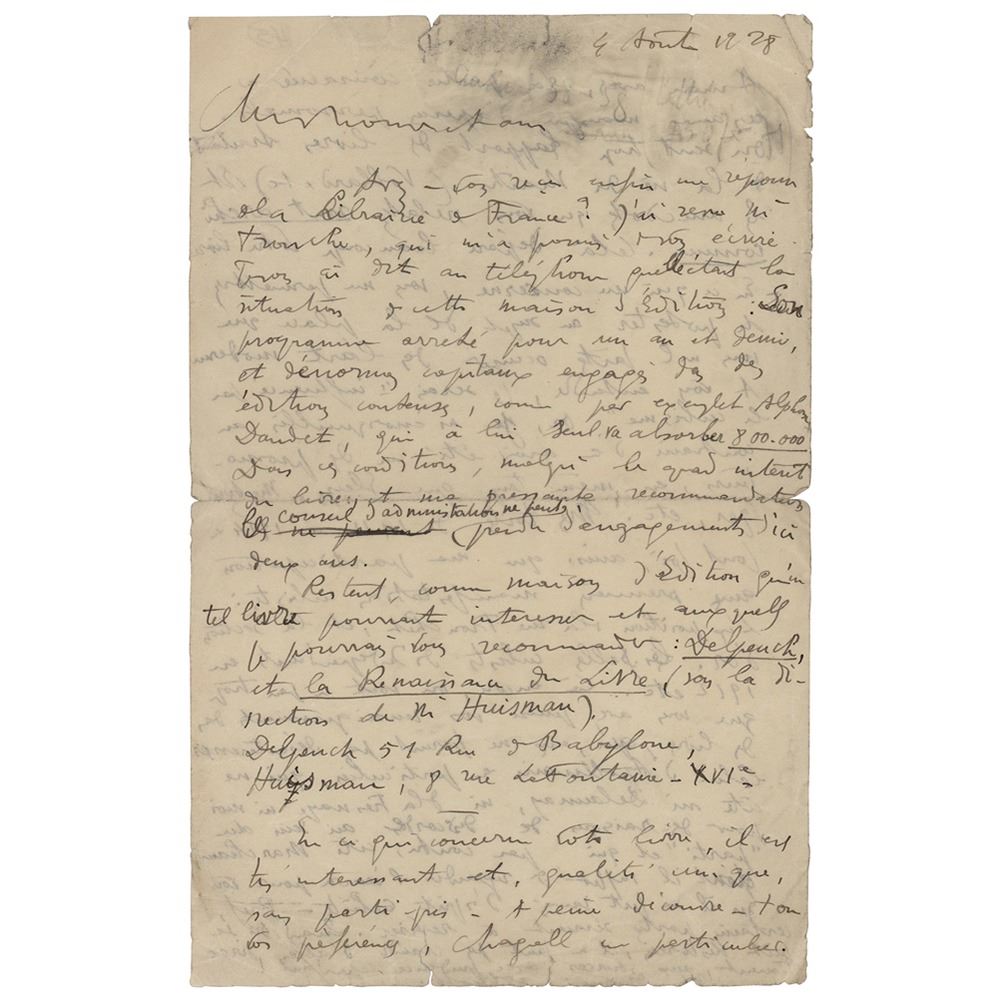 4 Août 1928
Mon cher ami
Avez-vous reçu enfin une réponse
de la Librairie de France ? J'ai revu M
qui m'a promis de vous écrire.
Il vous ai dit au téléphone quelle était la
situation de cette maison d'Édition : Son
programme arrêté pour un an et demi,
et d'énormes capitaux engagés ds des
éditions couteuses, comme par exemple Alphon
Daudet, qui à lui seul va absorber 800.000
Dans ces conditions, malgré le grand interet
du livre et ma pressante recommandation
le conseil d'administration ne peut
prendre d'engagements d'ici
deux ans.
Restent, comme maisons d'Édition qu'un
tel livre pourrait interesser et auxquelles
je pourrais vous recommander : Delpeuch,
et la Renaissance du Livre (sous la di-
rection de M Huisman).
Delpeuch 51 Rue de Babylone,
Huisman, 8 rue La Fontaine - XVIe
En ce qui concerne votre livre, il est
très interessant et, qualité unique,
sans parti pris - à peine découvre-t-on
vos préférences, Chagall en particulier.